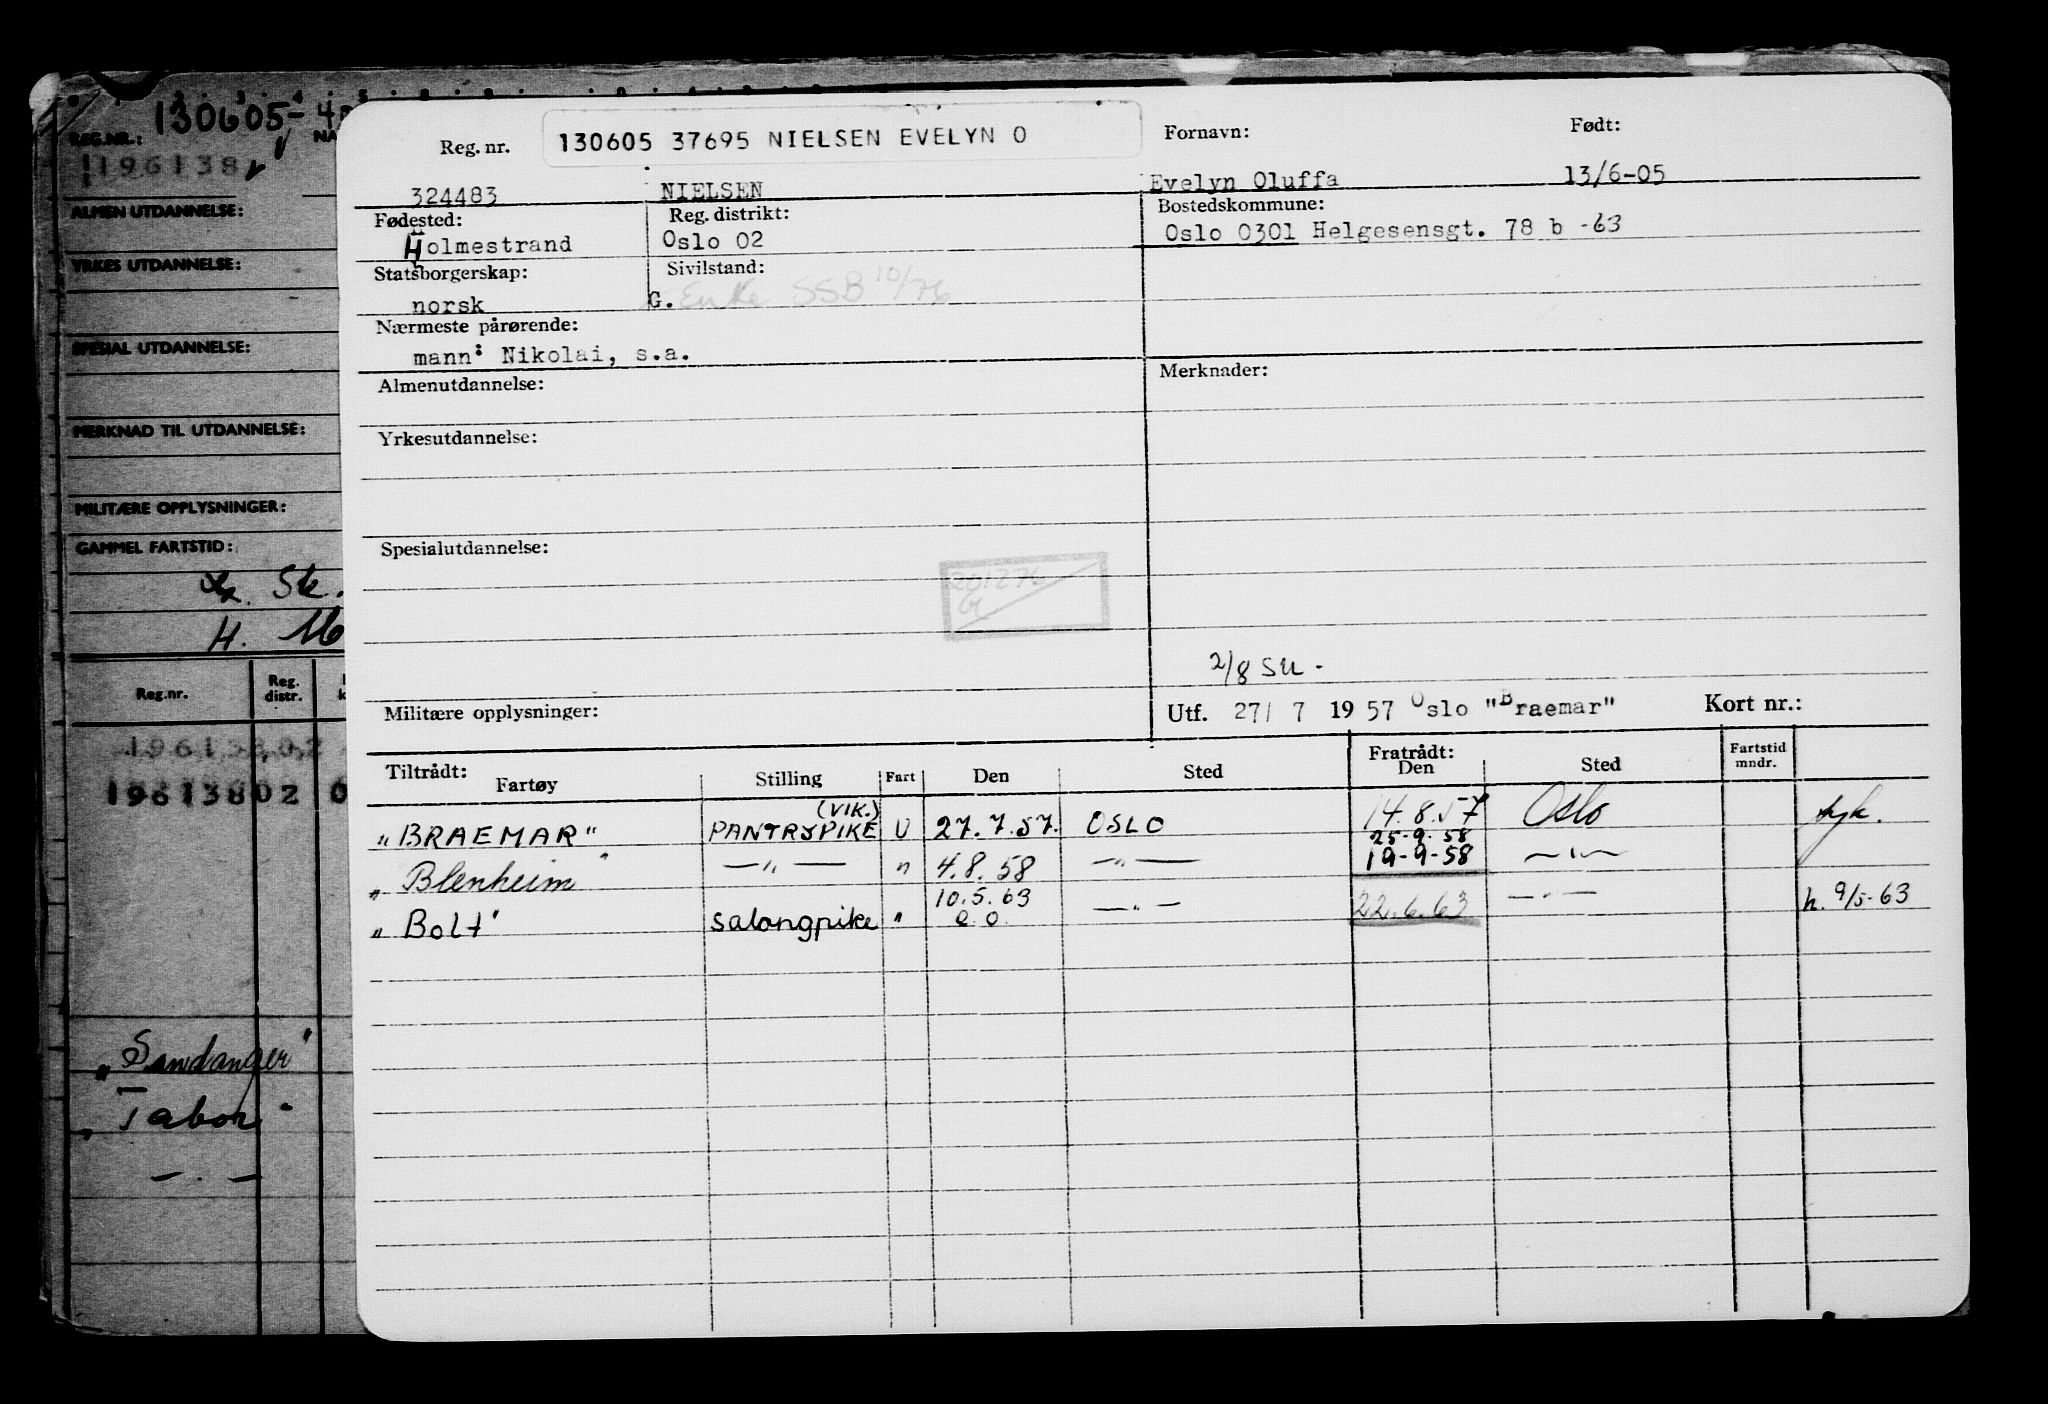 130605-
REG.NR.:
196138
ALMEN UTDANNELSE:
YRKES UTDANNELSE:
SPESIAL UTDANNELSE:
MERKNAD TIL UTDANNELSE:
MILITÆRE OPPLYSNINGER:
GAMMEL FARTSTID:
Reg.nr. Reg. distr.
1961380 2
19613802 0
"Sandanger"
"Tabor"
— " —
Reg. nr. 130605 37695 NIELSEN EVELYN O Fornavn: Født:
324483 NIELSEN Evelyn Oluffa 13/6-05
Fødested: Reg. distrikt: Bostedskommune:
Holmestrand Oslo 02 Oslo 0301 Helgesensgt. 78 b -63
Statsborgerskap: Sivilstand:
norsk G. Enke SSB 10/76
Nærmeste pårørende:
mann: Nikolai, s.a.
Almenutdannelse: Merknader:
Yrkesutdannelse:
Spesialutdannelse:
201276
2/8 SU -
Militære opplysninger: Utf. 27/ 7 19 57 Oslo "Braemar" Kort nr.:
Tiltrådt: Fartøy Stilling Fart Den Sted Fratrådt: Den Sted Fartstid mndr.
(VIK.)
"BRAEMAR" PANTRYPIKE U 27.7.57. OSLO 14.8.57 Oslo syk.
25-9-58
"Blenheim" — " — " 4.8.58 — " — 19-9-58 — " —
10.5.63
"Bolt" salongpike " e.o. — " — 22.6.63 — " — h. 9/5-63